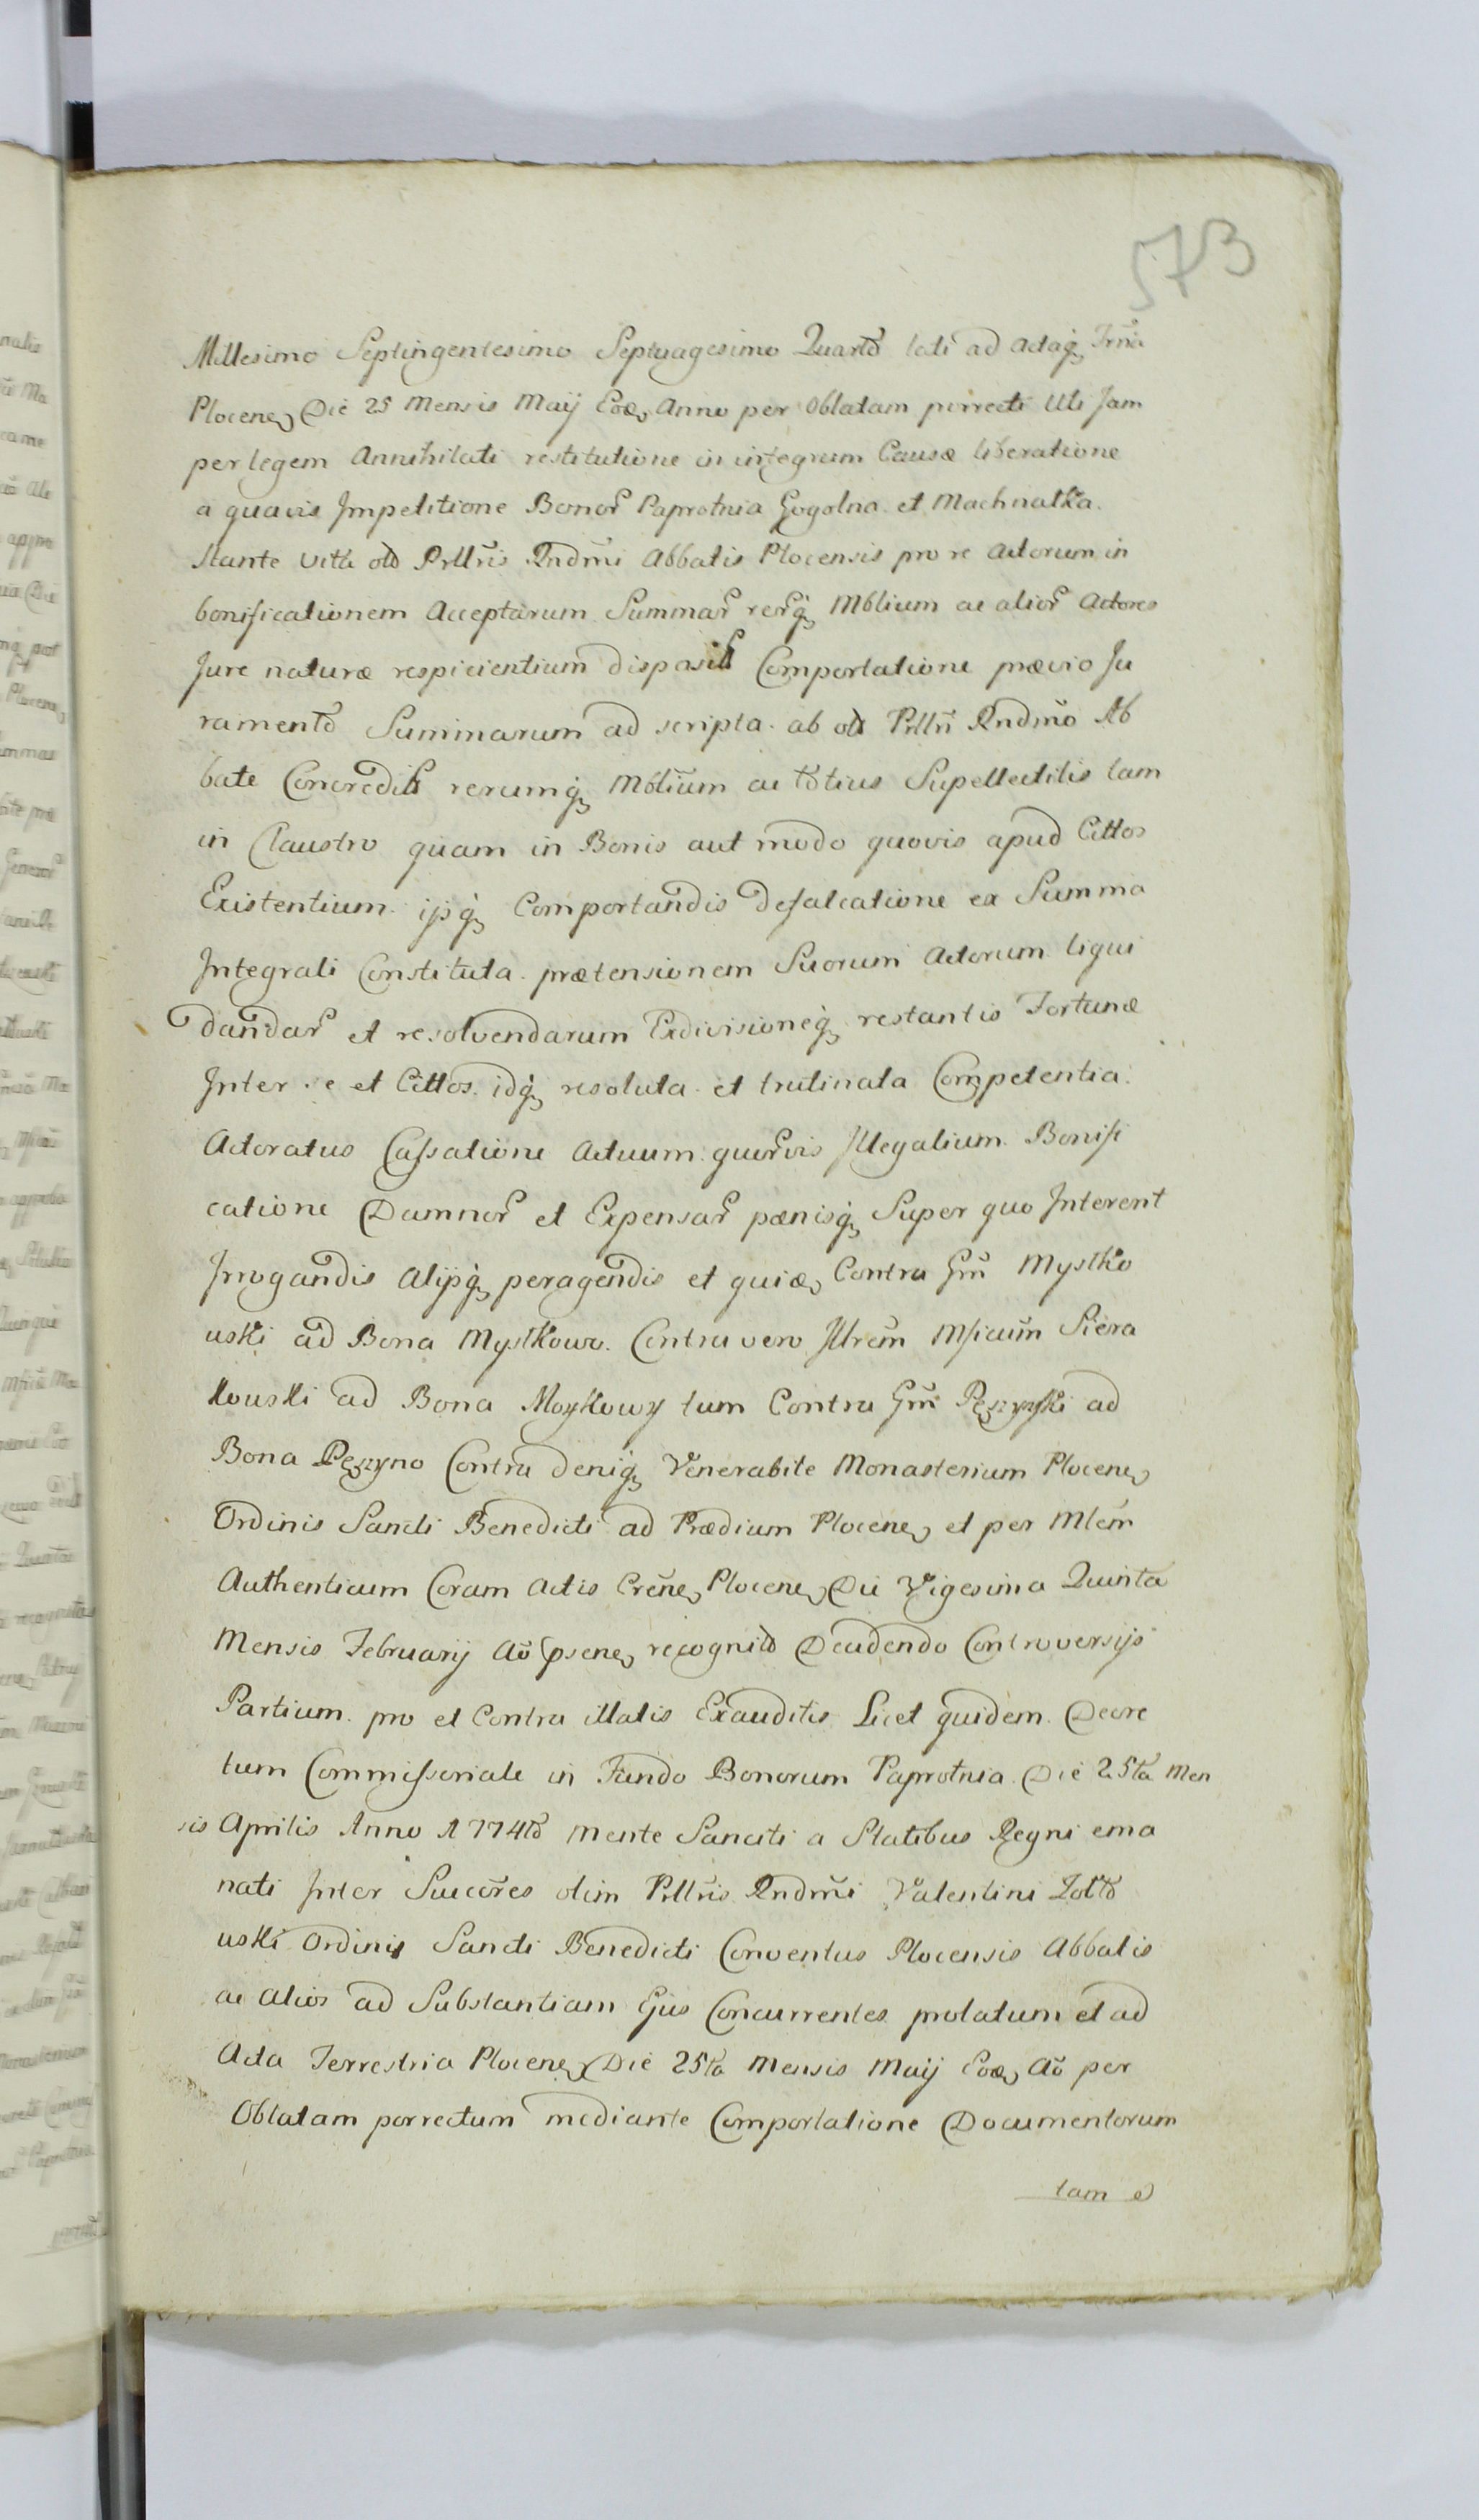 573
Millesimo Septingentesimo Septuagesimo Quarto lati ad Actaq Trrna
Plocene Die 25 Mensis Maij Eod Anno per Oblatam porrecti Uti Jam
per legem Annihilati restitutione in integrum Causæ liberatione
a quavis Impetitione Bonor Paprotnia Gogolna et Machnatka.
Stante vita old Prllris Rndmi Abbatis Plocensis pro re Actorum in
bonificationem Acceptarum Summar rerq Mblium ac alior Actores
Jure naturæ respicientium disposit Comportatione prævio Ju
ramento Summarum ad scripta ab old Prllri Rndmo Ab
bate Concredit rerumq Mblium ac totius Supellectilis tam
in Claustro quam in Bonis aut modo quovis apud Cittos
Existentium ijsq Comportandis defalcatione ex Summa
Integrali Constituta prætensionem Suorum Actorum liqui
dandar et resolvendarum Exdivisioneq restantis Fortunæ
Inter se et Cittos idq resoluta et trutinata Competentia
Actoratus Cassatione Actuum quorvis Illegalium Bonifi
catione Damnor et Expensar pænisq Super quo Interent
Irrogandis Alijsq peragendis et quia Contra Gm Mystko
wski ad Bona Mystkowo. Contra vero Illrem Mficum Siera
kowski ad Bona Moykowy tum Contra Gm Pęszyński ad
Bona Pęszyno Contra deniq Venerabile Monasterium Plocene
Ordinis Sancti Benedicti ad Prædium Plocene et per Mlem
Authenticum Coram Actis Crene Plocene Die Vigesima Quinta
Mensis Februarij Ao Psene recognito Decidendo Controversijs
Partium pro et Contra illatis Exauditis Licet quidem Decre
tum Commissoriale in Fundo Bonorum Paprotnia Die 25ta Men
sis Aprilis Anno 1774to mente Sanciti a Statibus Regni ema
nati Inter Succres olim Prllris Rndmi Valentini Zolto
wski Ordinis Sancti Benedicti Conventus Plocensis Abbatis
ac alios ad Substantiam Ejus Concurrentes prolatum et ad
Acta Terrestria Plocene Die 25ta Mensis Maij Eod Ao per
Oblatam porrectum mediante Comportatione Documentorum
tam e